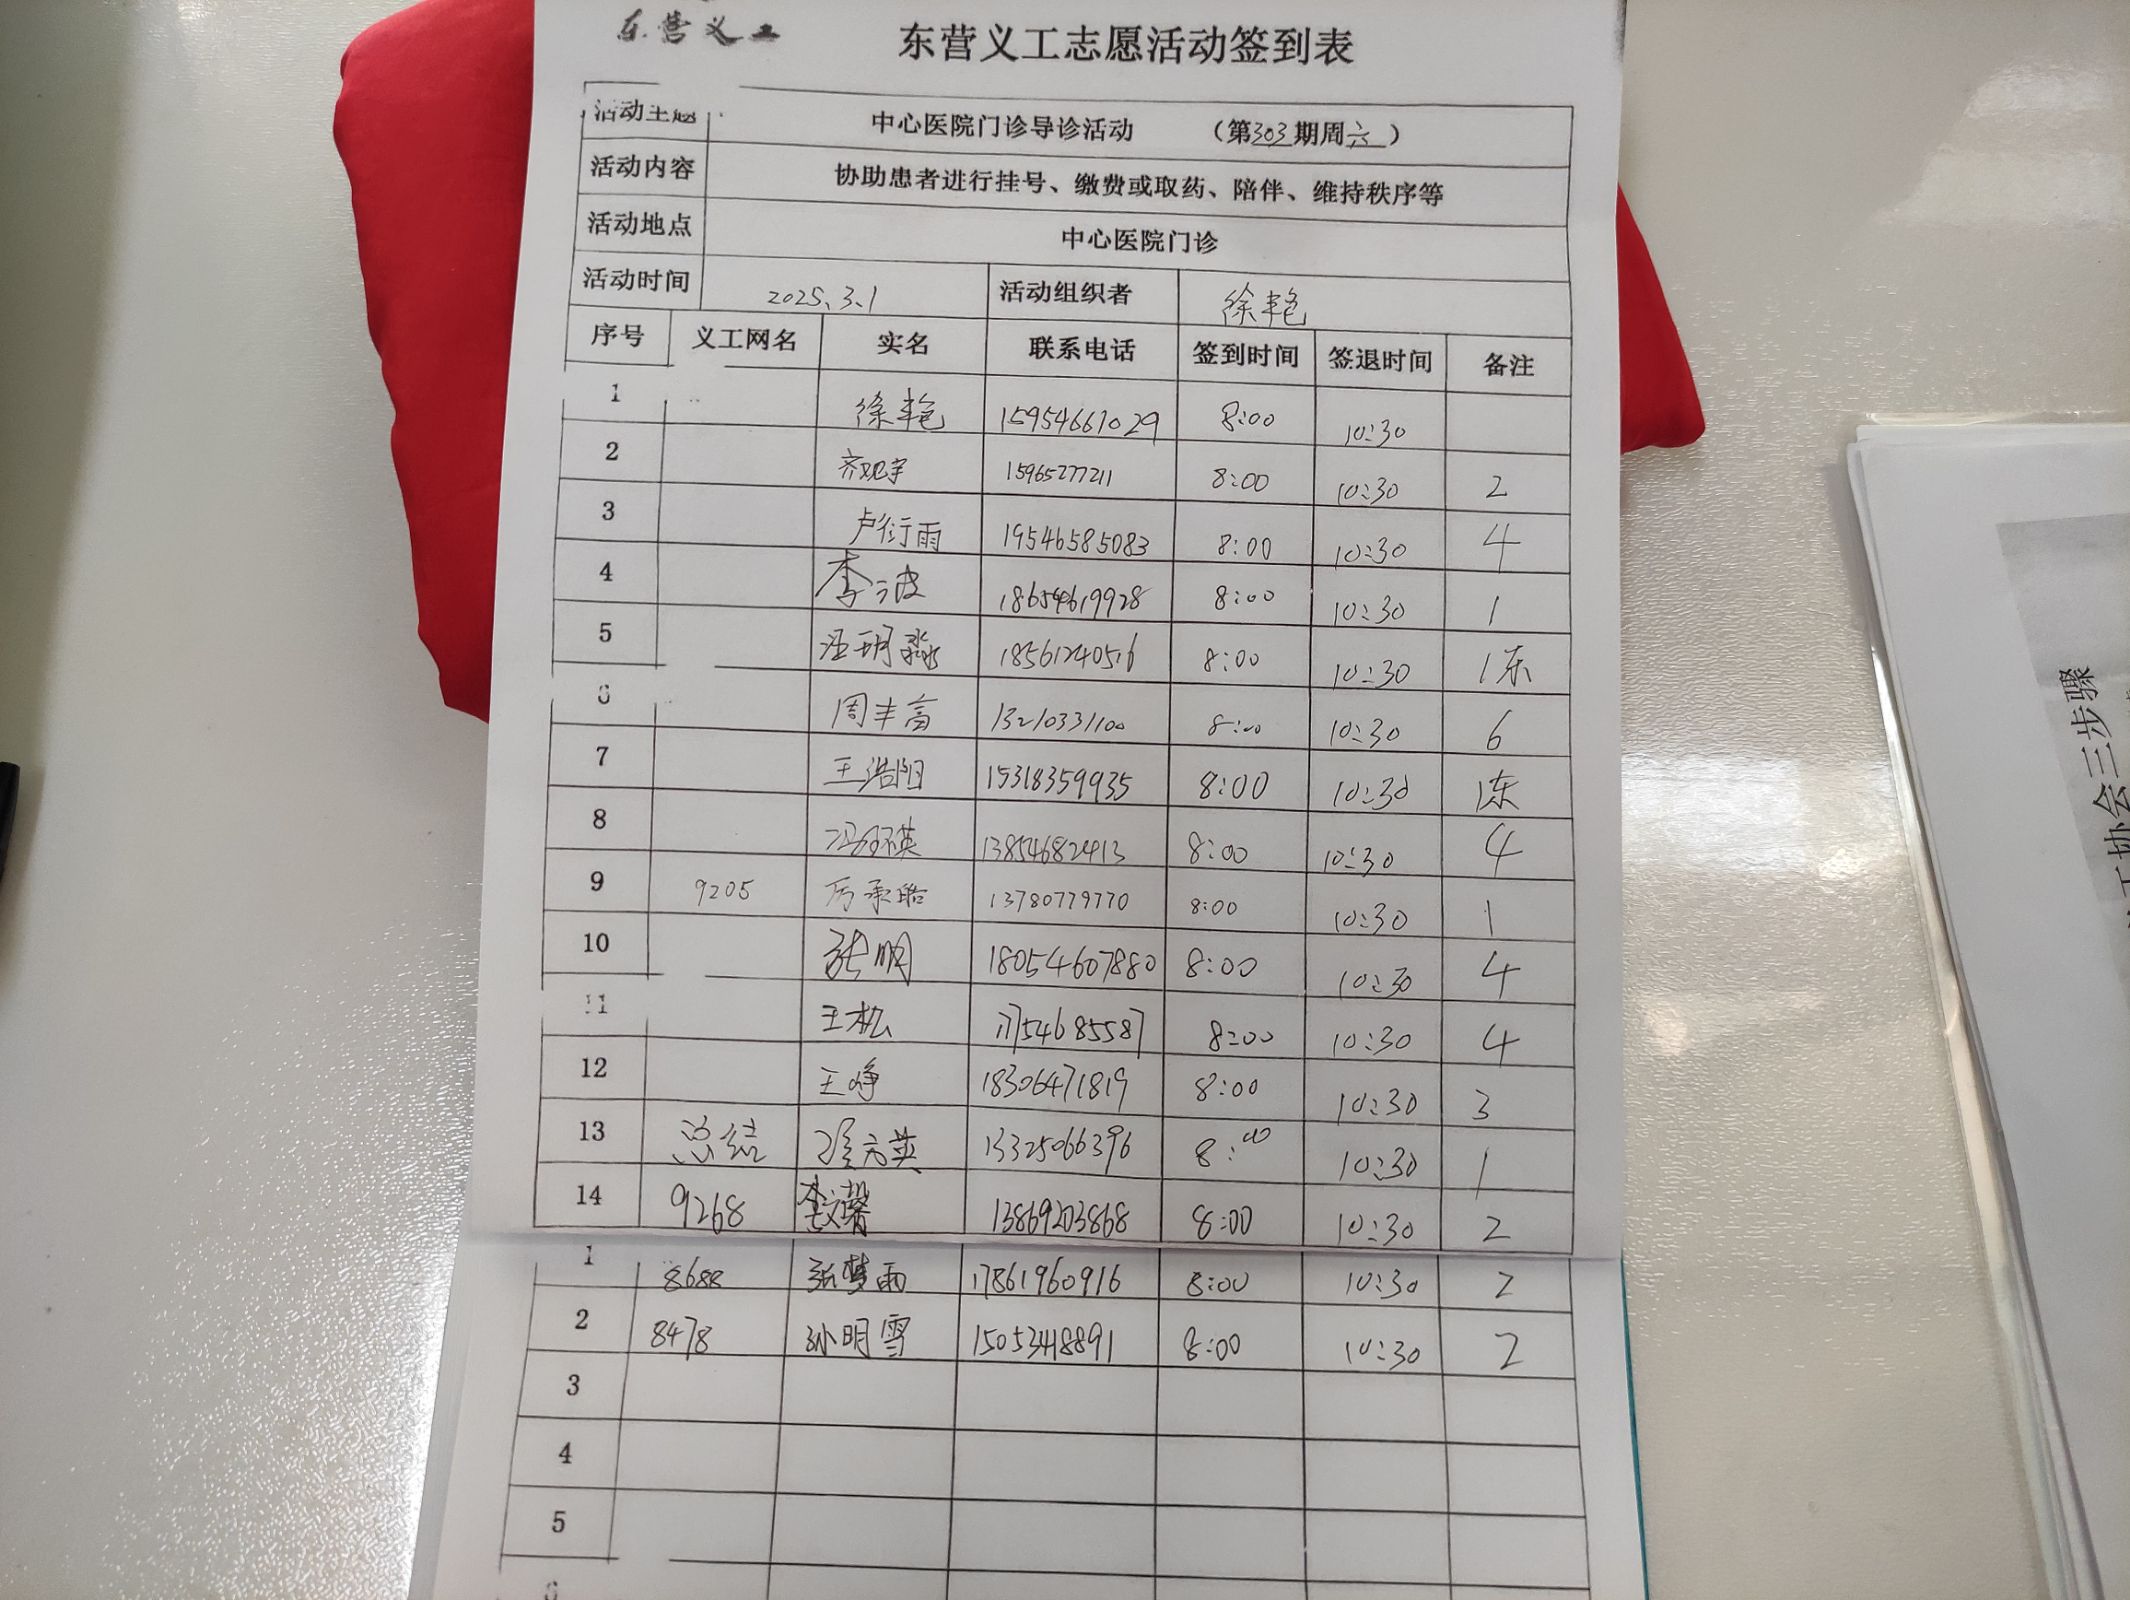 东营义工
东营义工志愿活动签到表
活动主题 中心医院门诊导诊活动 （第303期周六）
活动内容 协助患者进行挂号、缴费或取药、陪伴、维持秩序等
活动地点 中心医院门诊
活动时间 2025.3.1 活动组织者 徐丰艳
序号 义工网名 实名 联系电话 签到时间 签退时间 备注
1 徐丰艳 15954661029 8:00 10:30
2 齐观宇 15965277211 8:00 10:30 2
3 卢衍雨 19546585083 8:00 10:30 4
4 李波 18654619928 8:00 10:30 1
5 汪玥淼 18561240516 8:00 10:30 1东
6 周丰富 13210331100 8:00 10:30 6
7 王浩阳 15318359935 8:00 10:30 1东
8 英 13854682413 8:00 10:30 4
9 9205 厉承皓 13780779770 8:00 10:30 1
10 张明 18054607880 8:00 10:30 4
11 王松 17754685587 8:00 10:30 4
12 王峥 18306471819 8:00 10:30 3
13 总结 英 13325066396 8:00 10:30 1
14 9268 李文馨 13869203868 8:00 10:30 2
1 8688 张梦雨 17861960916 8:00 10:30 2
2 8478 孙明雪 15053418891 8:00 10:30 2
3
4
5
工协会三步骤